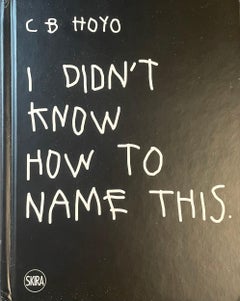 C B HOYO
I DIDN'T
KNOW
HOW TO
NAME THIS.
SKIRA